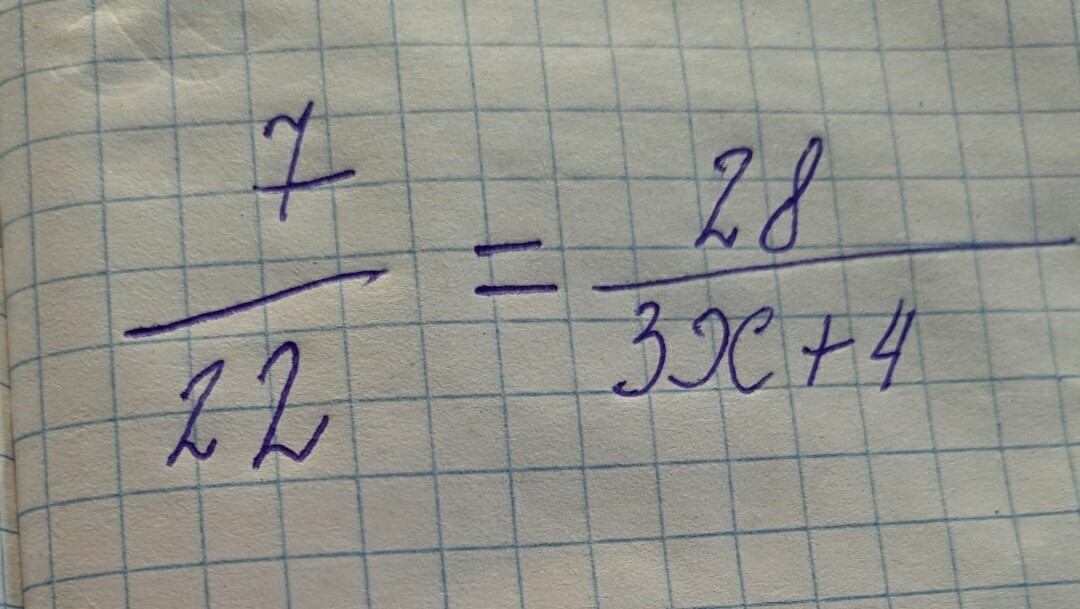 7/22 = 28/3x+4